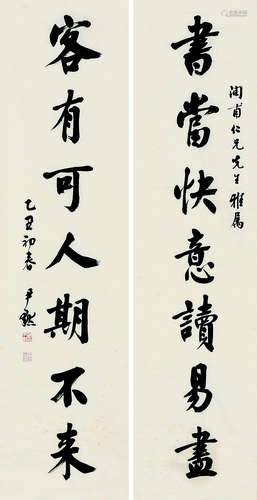 書當快意讀易盡
潤甫仁兄先生雅属
客有可人期不来
乙丑初春
尹默